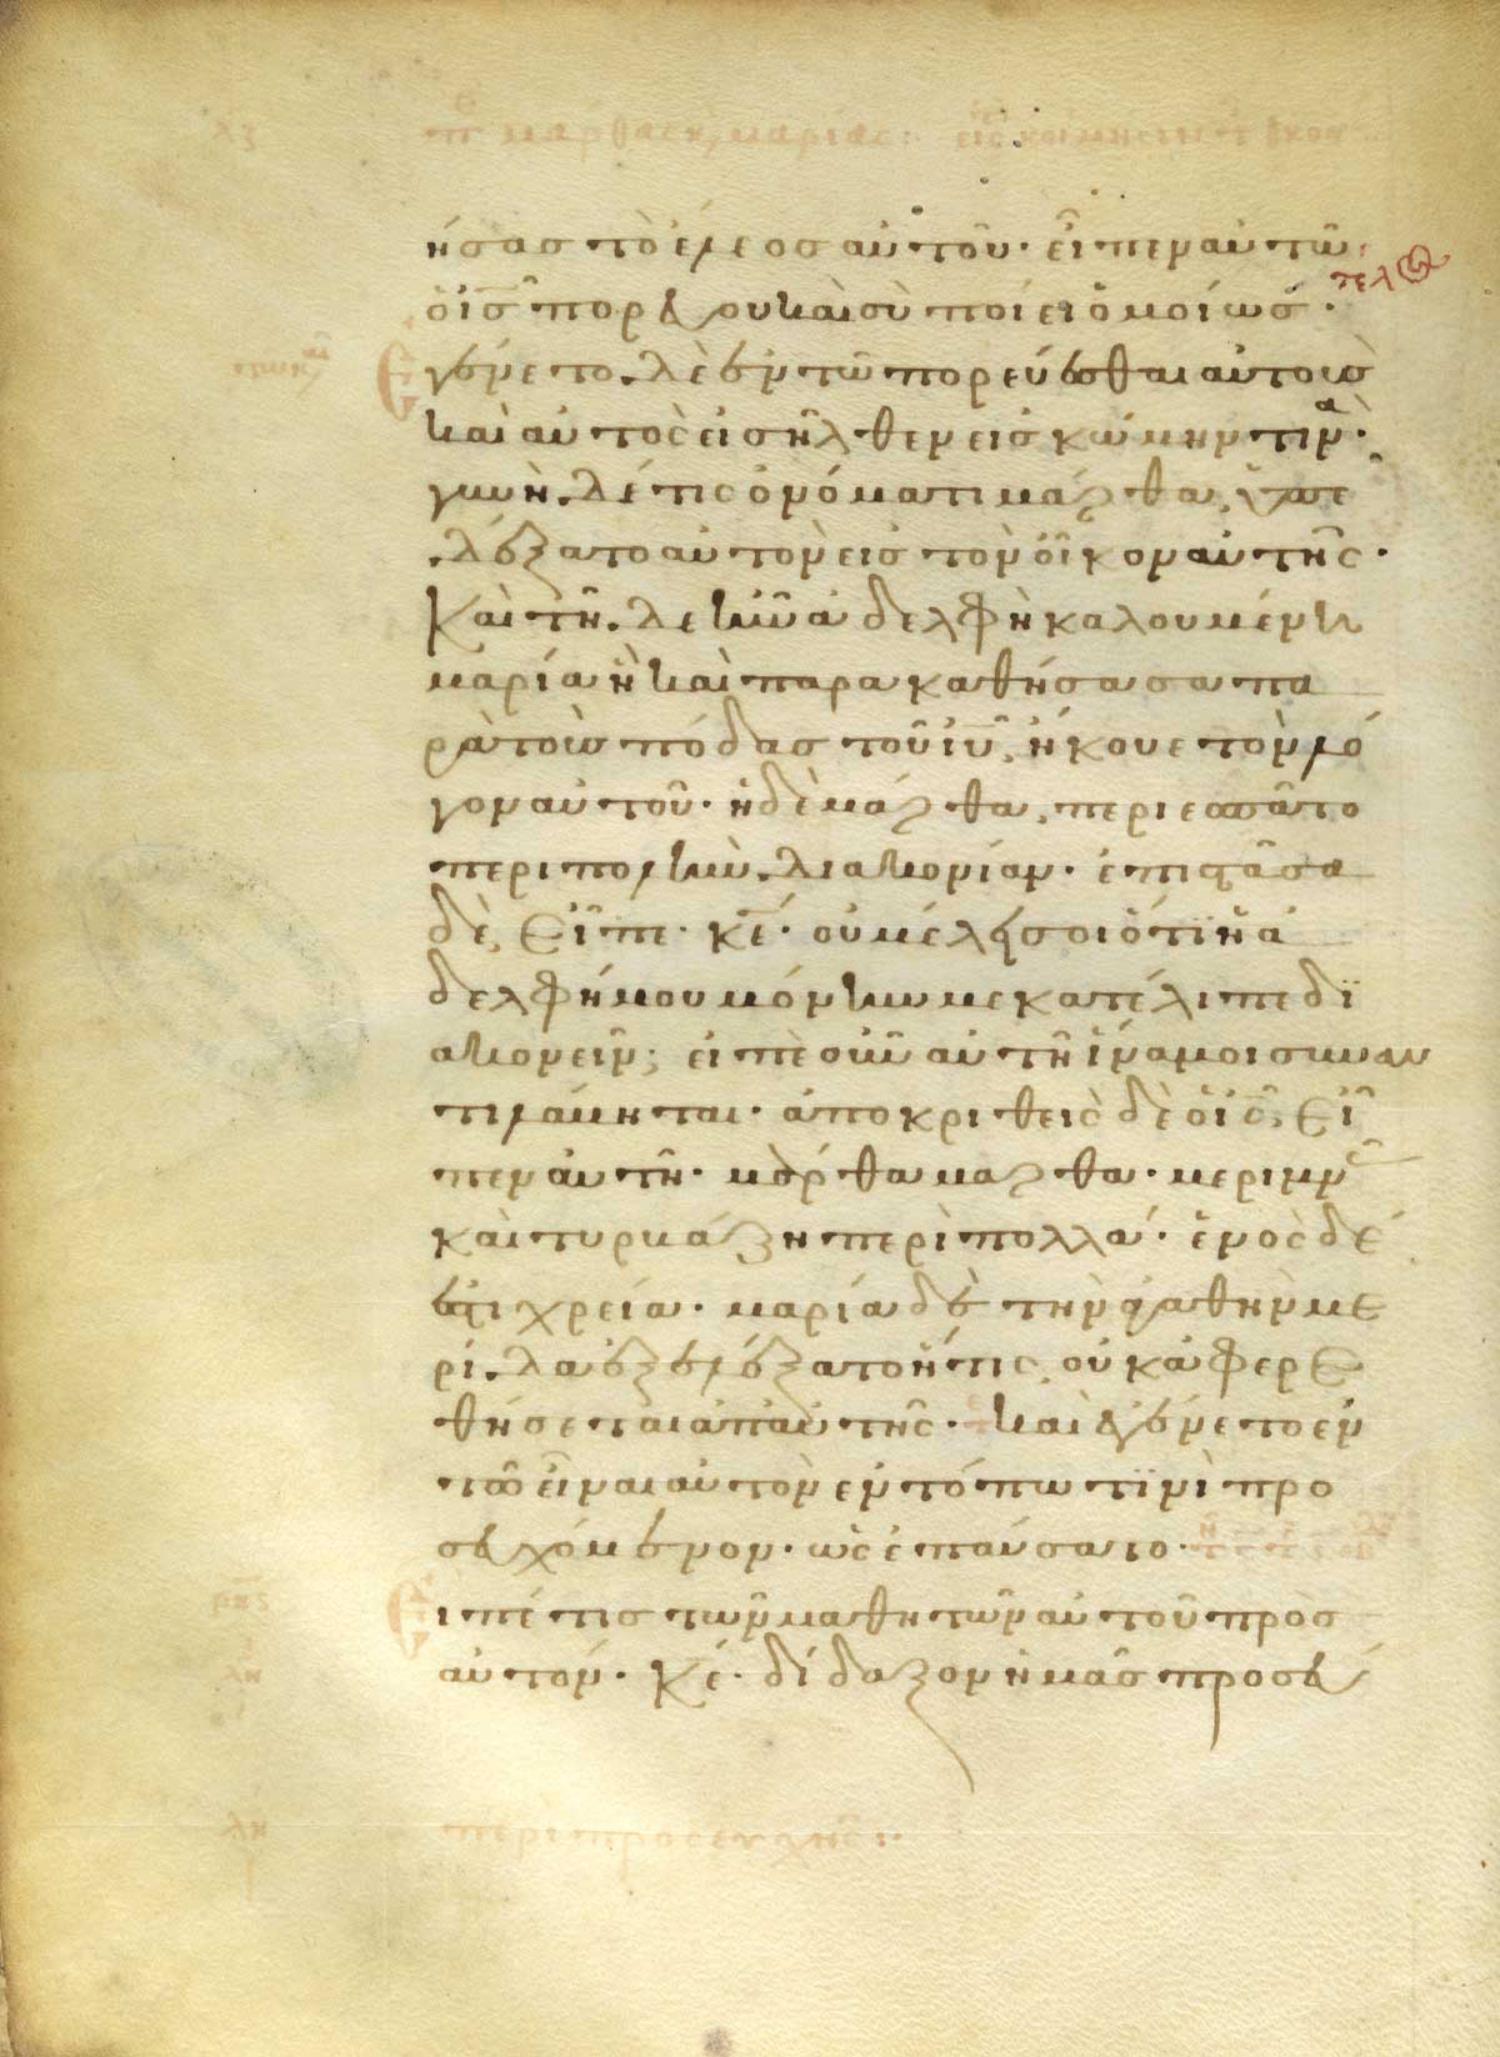 λζ π μάρθας κ, μαρίας: εἰς κοίμησιν τ θκου
ήσας τὸ ἔλεος αὐτοῦ· εἶπεν αὐτῶ
ὁ ι̅ς̅ πορεύου καὶ σὺ ποίει ὁμοίως· τελ
Εγένετο δὲ ἐν τῶ πορεύεσθαι αὐτοὺς
καὶ αὐτὸς εἰσῆλθεν εἰς κώμην τινὰ·
γυνὴ δέ τις ὀνόματι μάρθα, ὑπε
δέξατο αὐτὸν εἰς τὸν οἶκον αὐτῆς·
Καὶ τῆδε ἦν ἀδελφὴ καλουμένη
μαρία ἣ καὶ παρακαθήσασα πα
ρὰ τοὺς πόδας τοῦ ι̅υ̅, ἤκουε τὸν λό
γον αὐτοῦ· ἡ δὲ μάρθα, περιεσπᾶτο
περὶ πολλὴν διακονίαν· ἐπιστᾶσα
δὲ, εἶπε· κ̅ε̅· οὐ μέλει σοι ὅτι ἡ ἀ
δελφή μου μόνην με κατέλιπε δϊ
ακονεῖν; εἰπὲ οὖν αὐτῆ ἵνα μοι συναν
τιλάμηται· ἀποκριθεὶς δὲ ὁ ι̅ς̅, εἶ
πεν αὐτῆ· μάρθα μάρθα· μεριμν
καὶ τυρμάζη περὶ πολλά· ἑνὸς δέ
ἐστι χρεία· μαρία δὲ τὴν ἀγαθὴν με
ρίδα ἐξελέξατο ἥτις, οὐκ ἀφερε
θήσεται ἀπ' αὐτῆς· Καὶ ἐγένετο ἐν
τῶ εἶναι αὐτὸν ἐν τόπω τϊνὶ προ
σευχόμενον· ὡς ἐπαύσατο·
Ειπέ τις τῶν μαθητῶν αὐτοῦ πρὸς
αὐτόν· Κ̅ε̅· δίδαξον ἡμᾶς προσεύ
λη περι προσευχῆς: